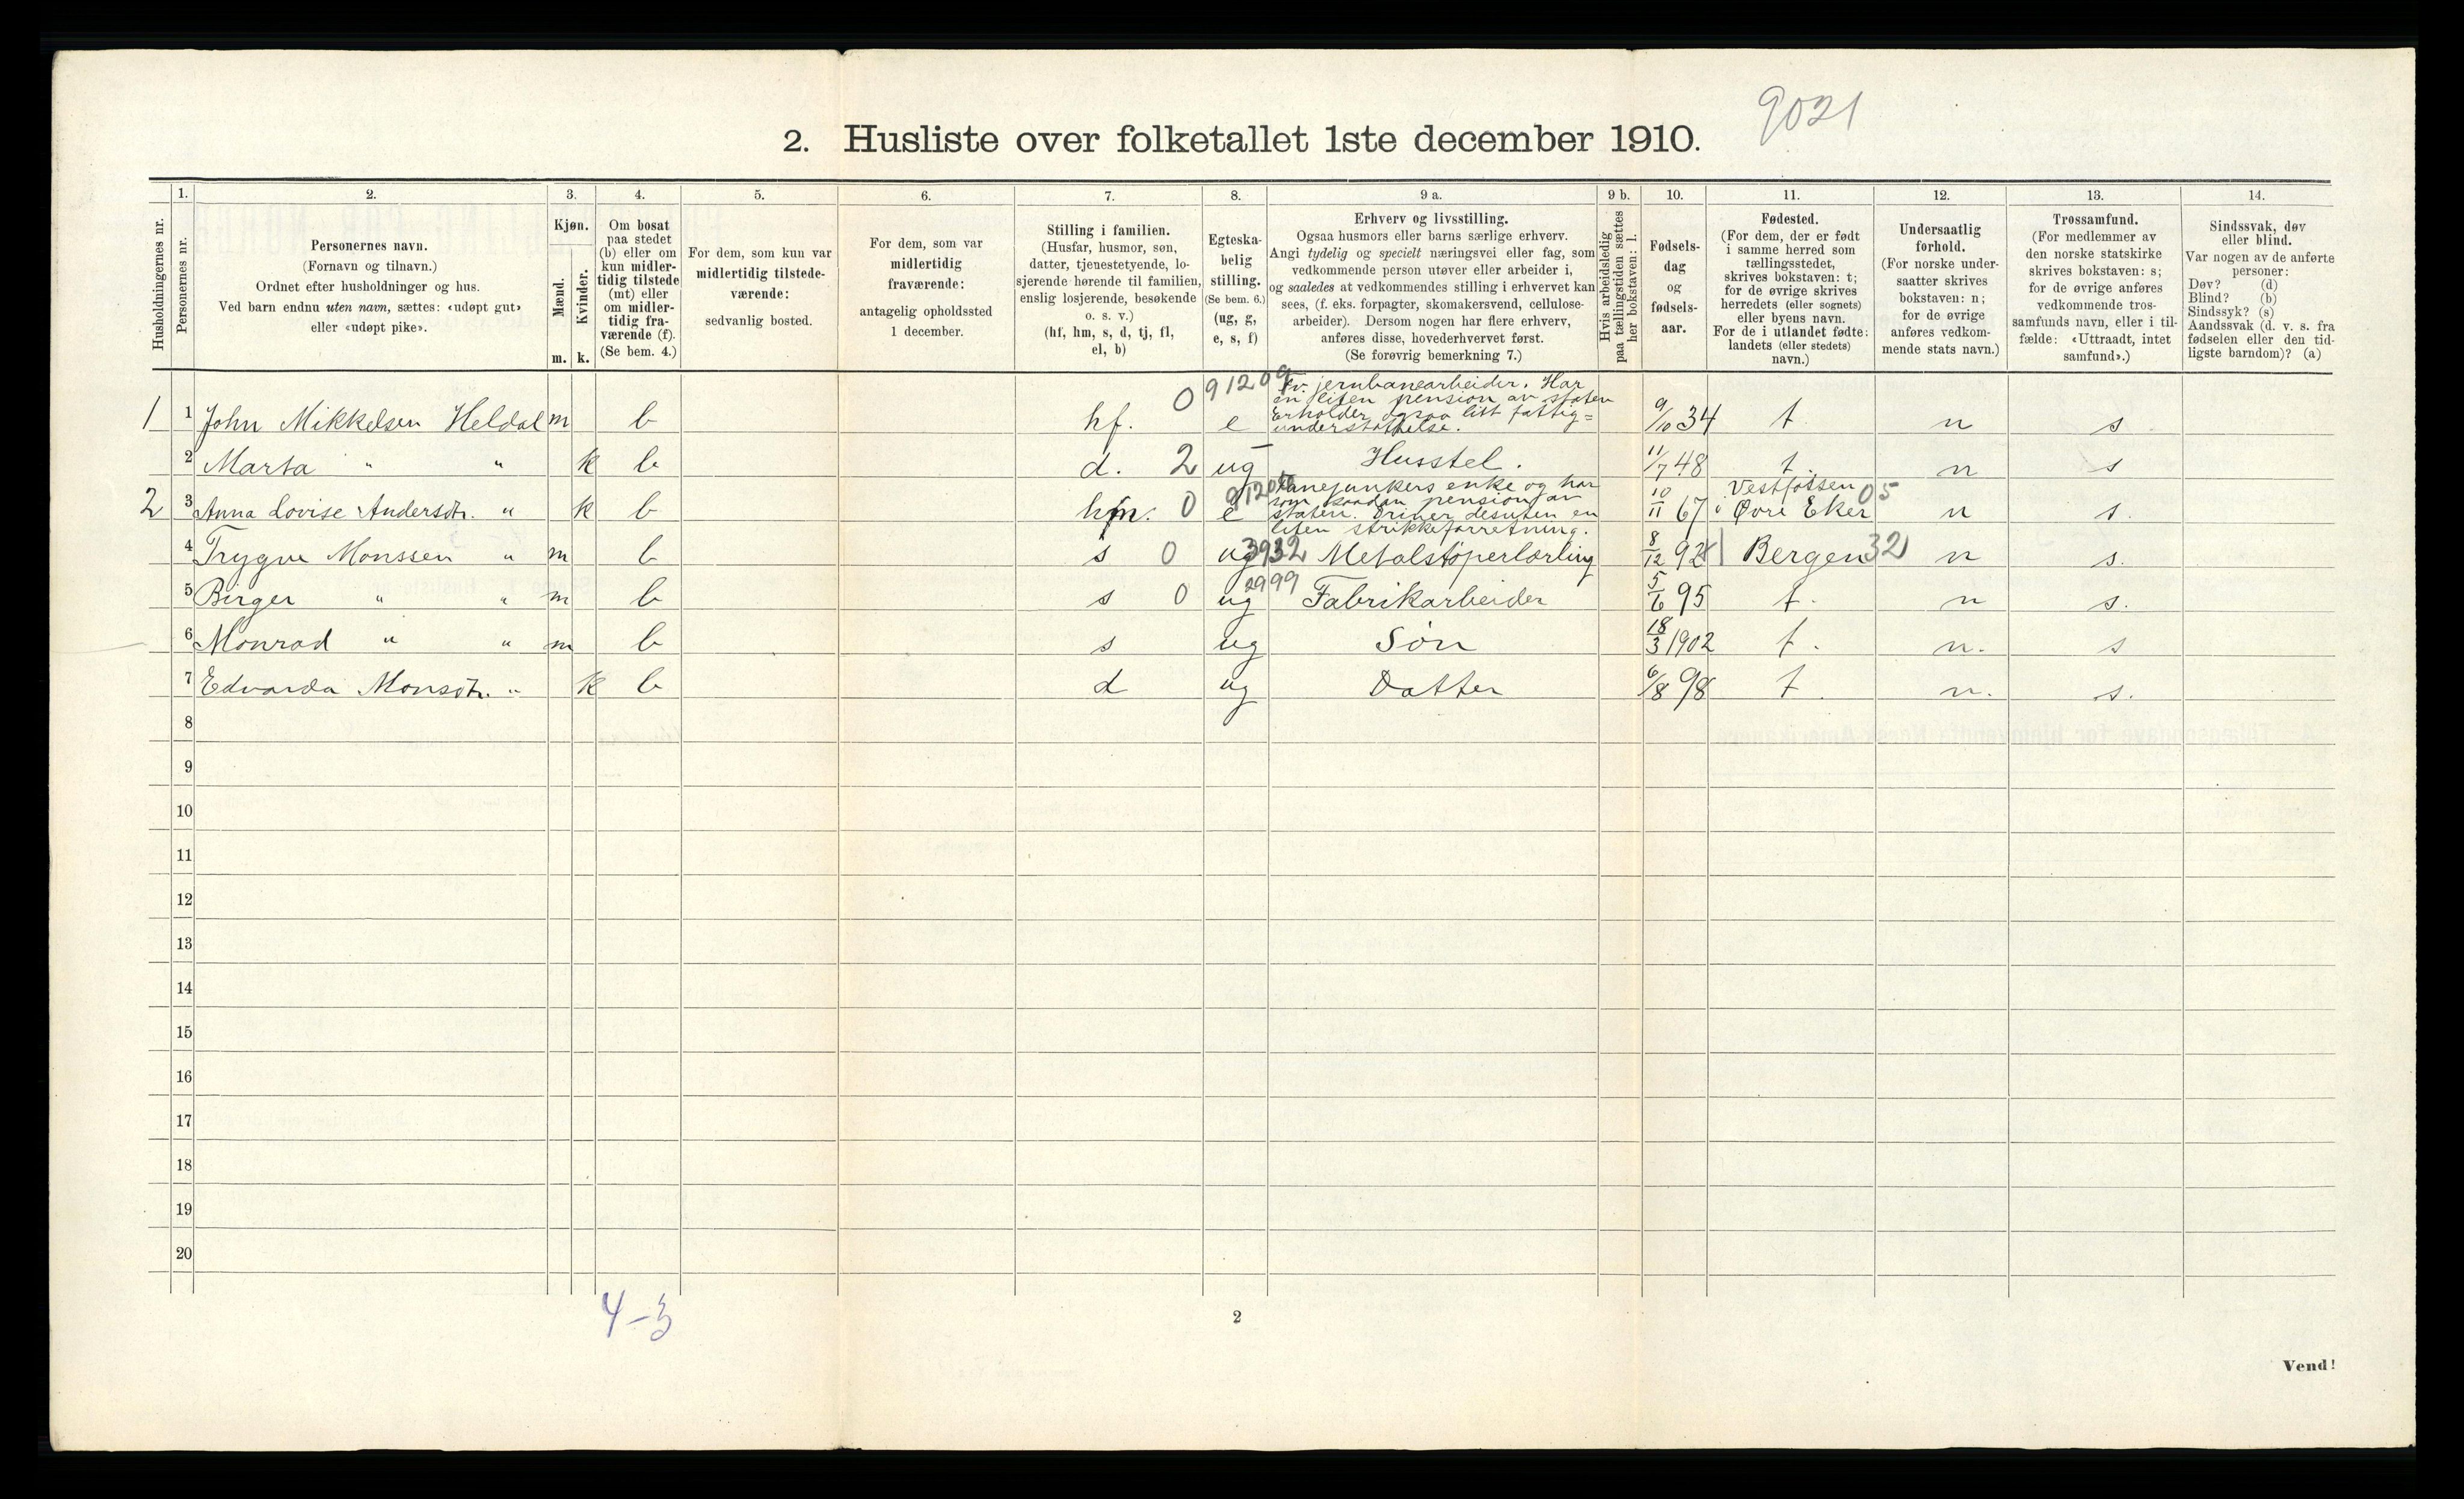 9021
2. Husliste over folketallet 1ste december 1910.
1. 2. 3. 4. 5. 6. 7. 8. 9 a. 9 b. 10. 11. 12. 13. 14.
Husholdningernes nr.
Personernes nr.
Personernes navn.
(Fornavn og tilnavn.)
Ordnet efter husholdninger og hus.
Ved barn endnu uten navn, sættes: «udøpt gut»
eller «udøpt pike».
Kjøn.
Mænd.
Kvinder.
m. k.
Om bosat
paa stedet
(b) eller om
kun midler-
tidig tilstede
(mt) eller
om midler-
tidig fra-
værende (f).
(Se bem. 4.)
For dem, som kun var
midlertidig tilstede-
værende:
sedvanlig bosted.
For dem, som var
midlertidig
fraværende:
antagelig opholdssted
1 december.
Stilling i familien.
(Husfar, husmor, søn,
datter, tjenestetyende, lo-
sjerende hørende til familien,
enslig losjerende, besøkende
o. s. v.)
(hf, hm, s, d, tj, fl,
el, b)
Egteska-
belig
stilling.
(Se bem. 6.)
(ug, g,
e, s, f)
Erhverv og livsstilling.
Ogsaa husmors eller barns særlige erhverv.
Angi tydelig og specielt næringsvei eller fag, som
vedkommende person utøver eller arbeider i,
og saaledes at vedkommendes stilling i erhvervet kan
sees, (f. eks. forpagter, skomakersvend, cellulose-
arbeider). Dersom nogen har flere erhverv,
anføres disse, hovederhvervet først.
(Se forøvrig bemerkning 7.)
Hvis arbeidsledig
paa tællingstiden sættes
her bokstaven: l.
Fødsels-
dag
og
fødsels-
aar.
Fødested.
(For dem, der er født
i samme herred som
tællingsstedet,
skrives bokstaven: t;
for de øvrige skrives
herredets (eller sognets)
eller byens navn.
For de i utlandet fødte:
landets (eller stedets)
navn.)
Undersaatlig
forhold.
(For norske under-
saatter skrives
bokstaven: n;
for de øvrige
anføres vedkom-
mende stats navn.)
Trossamfund.
(For medlemmer av
den norske statskirke
skrives bokstaven: s;
for de øvrige anføres
vedkommende tros-
samfunds navn, eller i til-
fælde: «Uttraadt, intet
samfund».)
Sindssvak, døv
eller blind.
Var nogen av de anførte
personer:
Døv? (d)
Blind? (b)
Sindssyk? (s)
Aandssvak (d. v. s. fra
fødselen eller den tid-
ligste barndom)? (a)
1 1 John Mikkelsen Heldal m b hf. 0 e 91209 Fv. jernbanearbeider. Har
en liten pension av staten
Erholder ogsaa litt fattig=
understøttelse. 9/10 34 t n s
2 Marta " " k b d. 2 ug - Husstel. 11/7 48 t. n s
2 3 Anna Lovise Andersdtr. " k b hm. 0 e Fanejunkers enke og har
som saadan pension av
staten. Driver desuten en
liten strikkeforretning. 10/11 67 Vestfossen
i Øvre Eker 05 n s.
4 Trygve Monssen " m b s 0 ug 3932 Metalstøperlærling 8/12 92 Bergen 32 n s.
5 Birger " " m b s 0 ug 2999 Fabrikarbeider 5/6 95 t. n s.
6 Monrad " " m b s ug Søn 18/3 1902 t. n. s
7 Edvarda Monsdtr. " k b d ug Datter 6/8 98 t. n. s.
8
9
10
11
12
13
14
15
16
17
18
19
20
4-3
2
Vend!